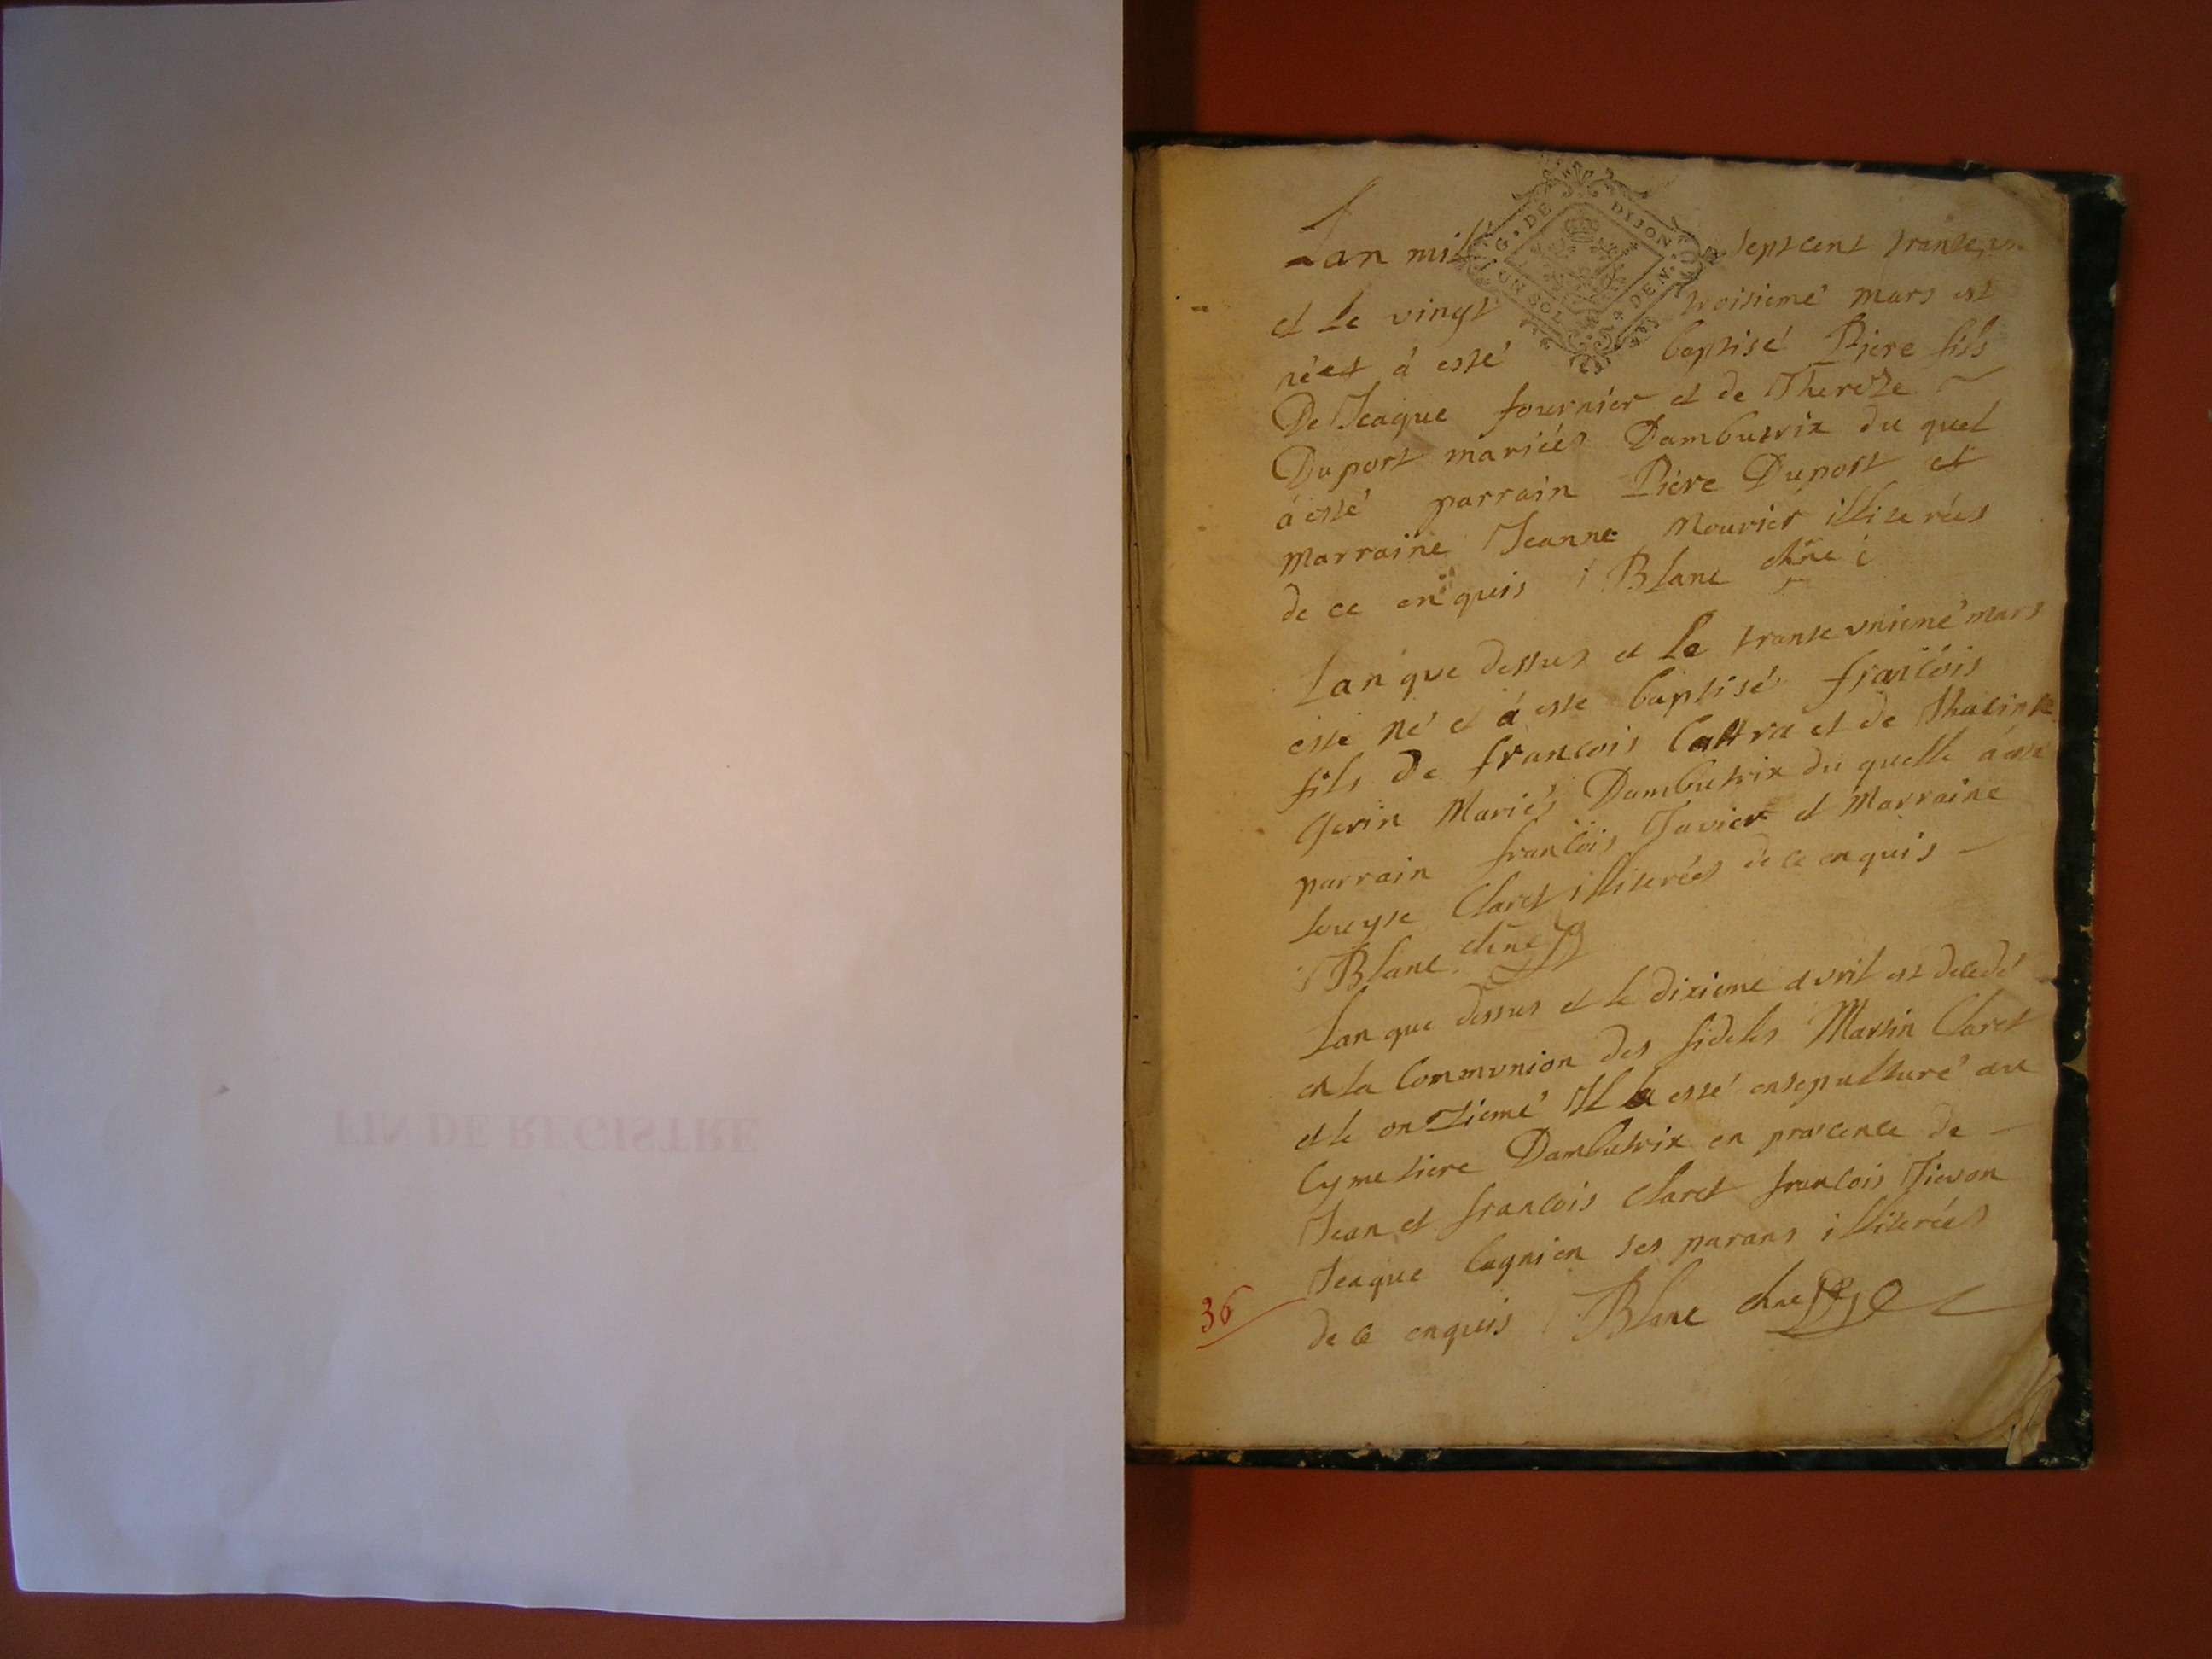 FIN DE REGISTRE
G. DE DIJON
UN SOL
DEN.
Lan mil septcent trante, un
et le vingt troisieme mars est
néet á esté baptisé Piere fils
De Jeaque fournier et de Thereze
Duport mariées Dambutrix du quel
á esté parrain Piere Duport et
marraine Jeanne Mourier illiterées
de ce enquis Blanc chne
Lan que dessus et le trante unieme mars
esté né et á esté baptisé francois
fils De francois Cattra et de Thacinte
Gerin Mariés Dambutrix du quelle á esté
parrain francois Javier et Marraine
Louyse Claret illiterées de ce enquis
Blanc chne
Lan que dessus et le dixieme avril est decedé
en la Communion des fideles Martin Claret
et le onzieme Il a esté ensepulturé au
Cymetiere Dambutrix en praesence de
Jean et francois Claret francois Tievon
Jeaque Cagnien ses parans illiterées
de ce enquis Blanc chne
36